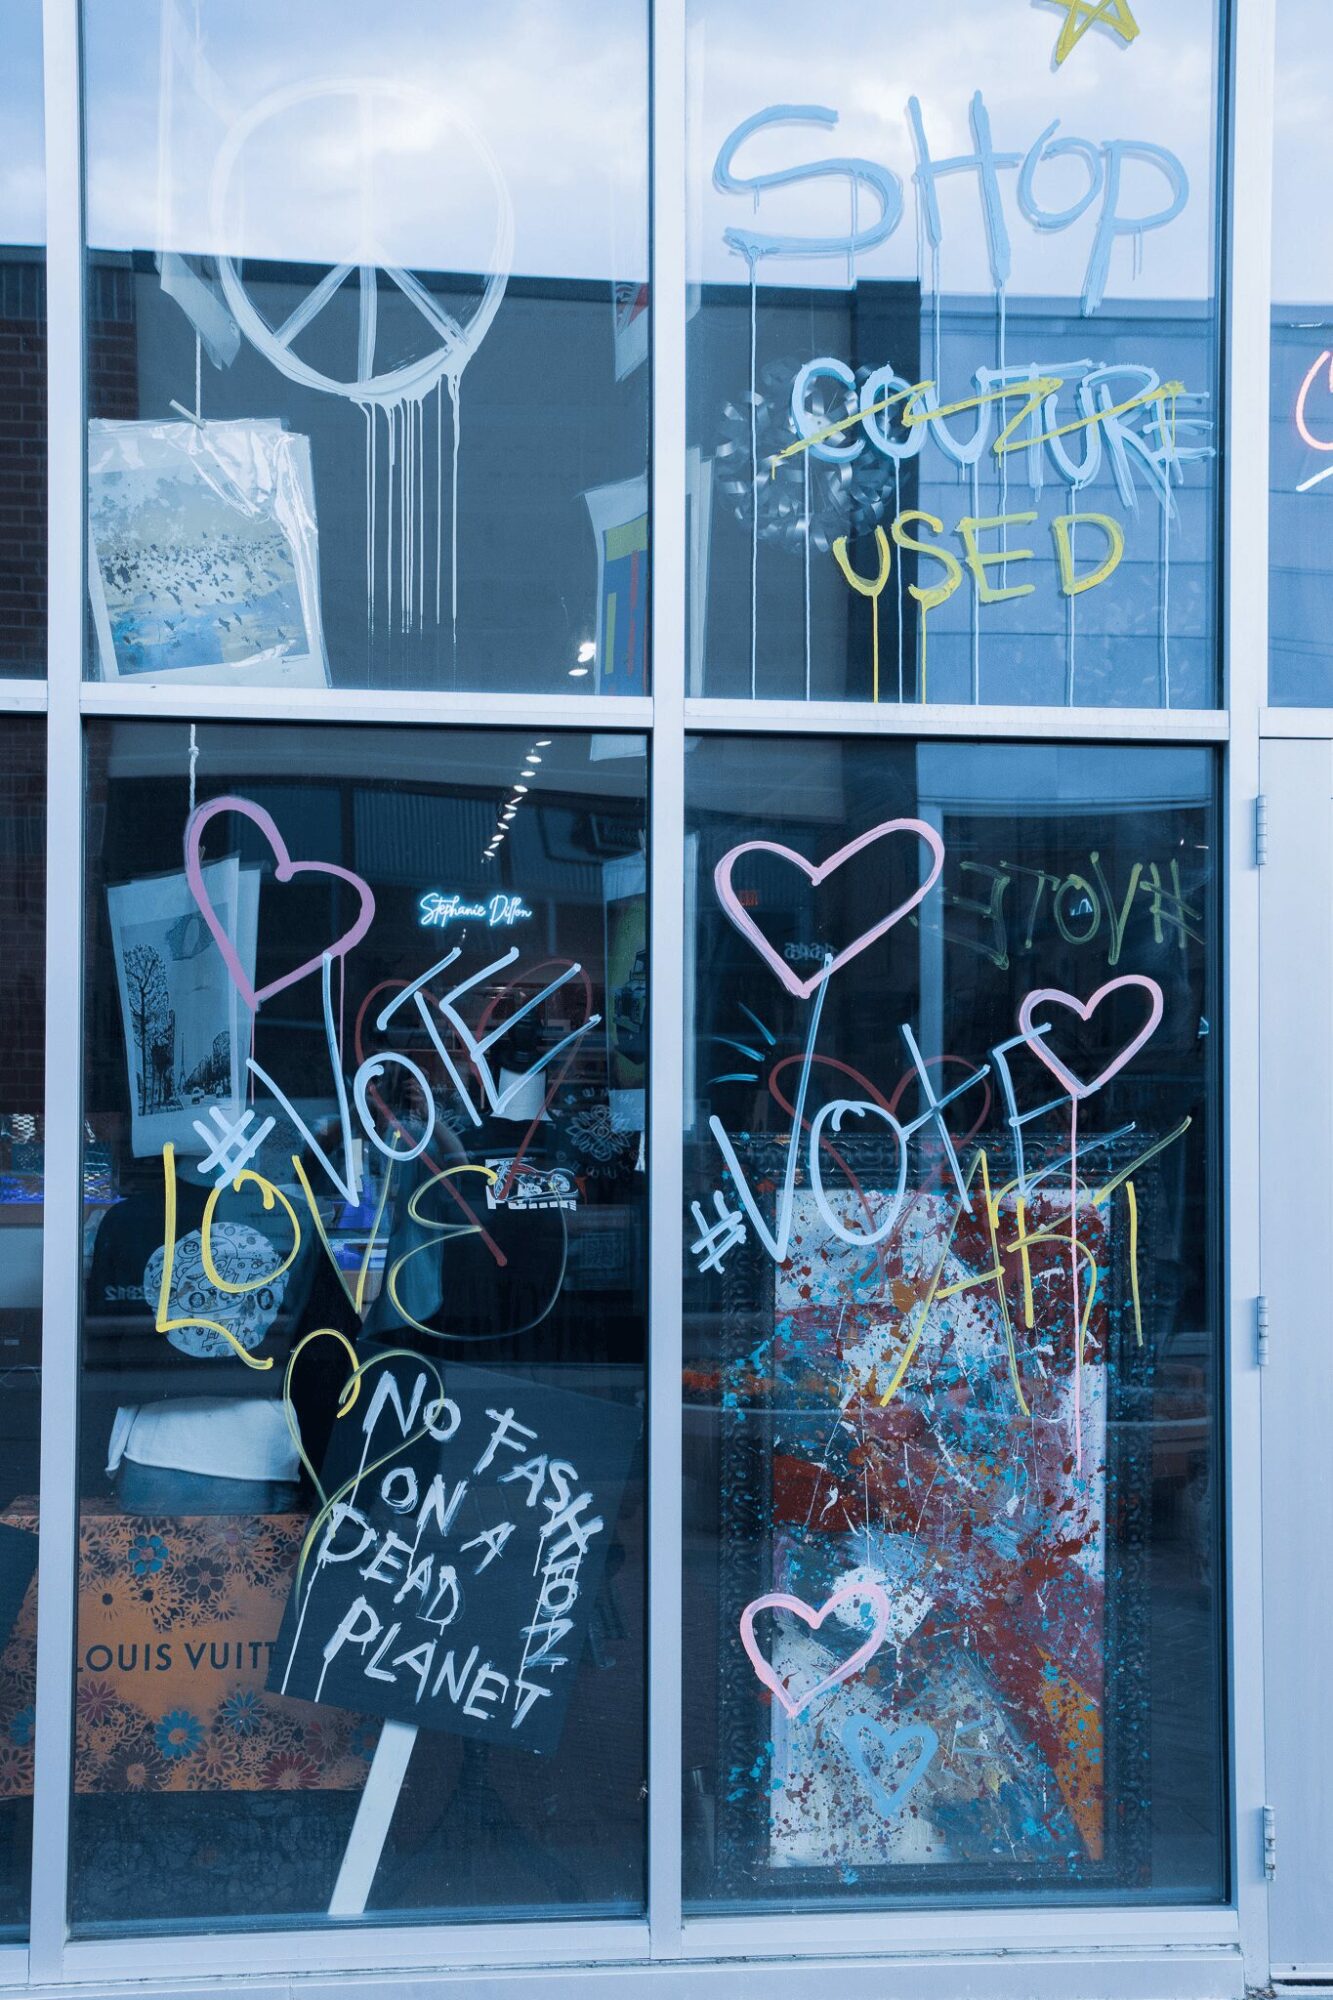 SHOP
COUTURE
USED
Stephanie Dillon
#VOTE
LOVE
NO FASHION
ON A
DEAD
PLANET
LOUIS VUITT
#VOTE
#VOTE
ART